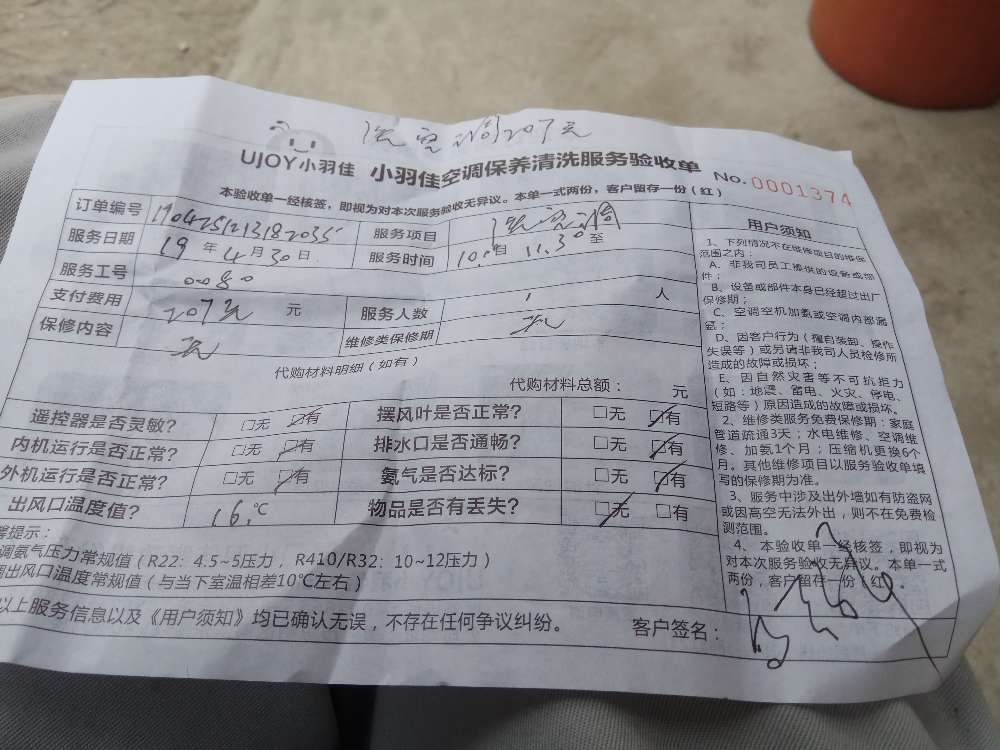 洗空调207元
UJOY小羽佳 小羽佳空调保养清洗服务验收单 No.0001374
本验收单一经核签，即视为对本次服务验收无异议。本单一式两份，客户留存一份（红）
订单编号 服务项目 洗空调
服务日期 19年4月30日 服务时间 自 11.30至
服务工号 0080
支付费用 207元 元 服务人数 1 人
保修内容 无 维修类保修期 无
代购材料明细（如有）
代购材料总额： 元
遥控器是否灵敏？ □无 □有 摆风叶是否正常？ □无 □有
内机运行是否正常？ □无 □有 排水口是否通畅？ □无 □有
外机运行是否正常？ □无 □有 氨气是否达标？ □无 □有
出风口温度值？ 16.℃ 物品是否有丢失？ □无 □有
提示：
调氨气压力常规值（R22：4.5~5压力，R410/R32：10~12压力）
出风口温度常规值（与当下室温相差10℃左右）
以上服务信息以及《用户须知》均已确认无误，不存在任何争议纠纷。
客户签名：
用户须知
1、下列情况不在维修项目的维保
范围之内：
A、非我司员工提供的设备或部
件；
B、设备或部件本身已经超过出厂
保修期；
C、空调空机加氨或空调内部漏
氨；
D、因客户行为（擅自装卸、操作
失误等）或另请非我司人员检修所
造成的故障或损坏；
E、因自然灾害等不可抗拒力
（如：地震、雷电、火灾、停电、
短路等）原因造成的故障或损坏。
2、维修类服务免费保修期：家庭
管道疏通3天；水电维修、空调维
修、加氨1个月；压缩机更换6个
月。其他维修项目以服务验收单填
写的保修期为准。
3、服务中涉及出外墙如有防盗网
或因高空无法外出，则不在免费检
测范围。
4、本验收单一经核签，即视为
对本次服务验收无异议。本单一式
两份，客户留存一份（红）。